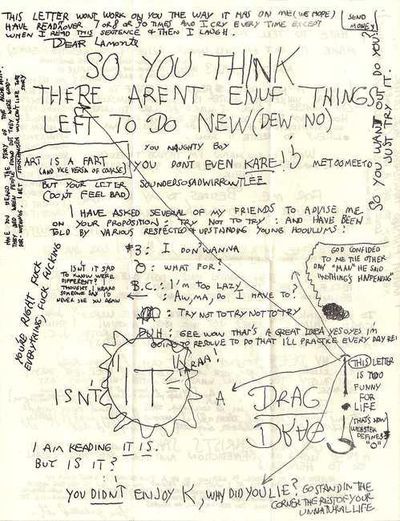 THIS LETTER WONT WORK ON YOU THE WAY IT HAS ON ME (WE HOPE)
HAVE READ OVER 7 OR 8 OR 70 TIMES AND I CRY EVERY TIME EXCEPT
WHEN I READ THIS SENTENCE & THEN I LAUGH.
SEND MONEY
DEAR LAMONTE
SO YOU THINK
THERE ARENT ENUF THINGS
LEFT TO DO NEW (DEW NO)
SO YOU WANT OUT DO YOU
JUST TRY IT.
YOU NAUGHTY BOY
ART IS A FART
(AND VICE VERSA OF COURSE)
YOU DON'T EVEN KARE!
METOOMEETO
BUT YOUR LETTER
(DON'T FEEL BAD)
SOUNDEDSOSADWIRROWFLEE
I HAVE ASKED SEVERAL OF MY FRIENDS TO ADVISE ME
ON YOUR PROPOSITION: TRY NOT TO TRY: AND HAVE BEEN
TOLD BY VARIOUS RESPECTED & UPSTANDING YOUNG HOODLUMS:
#3: I DON WANNA
: WHAT FOR:
B.C.: I'M TOO LAZY
: AW, MA, DO I HAVE TO:
: TRY NOT TO TRY NOT TO TRY
DUH: GEE WOW THAT'S A GREAT IDEA YESOYES I'M
GOING TO RESOLVE TO DO THAT I'LL PRACTICE EVERY DAY
GOD CONFIDED
TO ME THE OTHER
DAY "MAN" HE SAID
"NOTHINGS HAPPENING"
ISN'T IT SAD
TO KNOW WE'RE
DIFFERENT?
THOUGHT I HEARD
SOMEONE SAY I'D
NEVER SEE YOU AGAIN
YOU'RE RIGHT FUCK
EVERYTHING, FUCK FUCKING
ISN'T IT A DRAG
DRAG
THIS LETTER
IS TOO
FUNNY
FOR
LIFE
THAT'S HOW
WEBSTER
DEFINES
"O"
I AM READING IT IS.
BUT IS IT?
YOU DIDN'T ENJOY K, WHY DID YOU LIE? GO STAND IN THE
CORNER THE REST OF YOUR
UNNATURAL LIFE